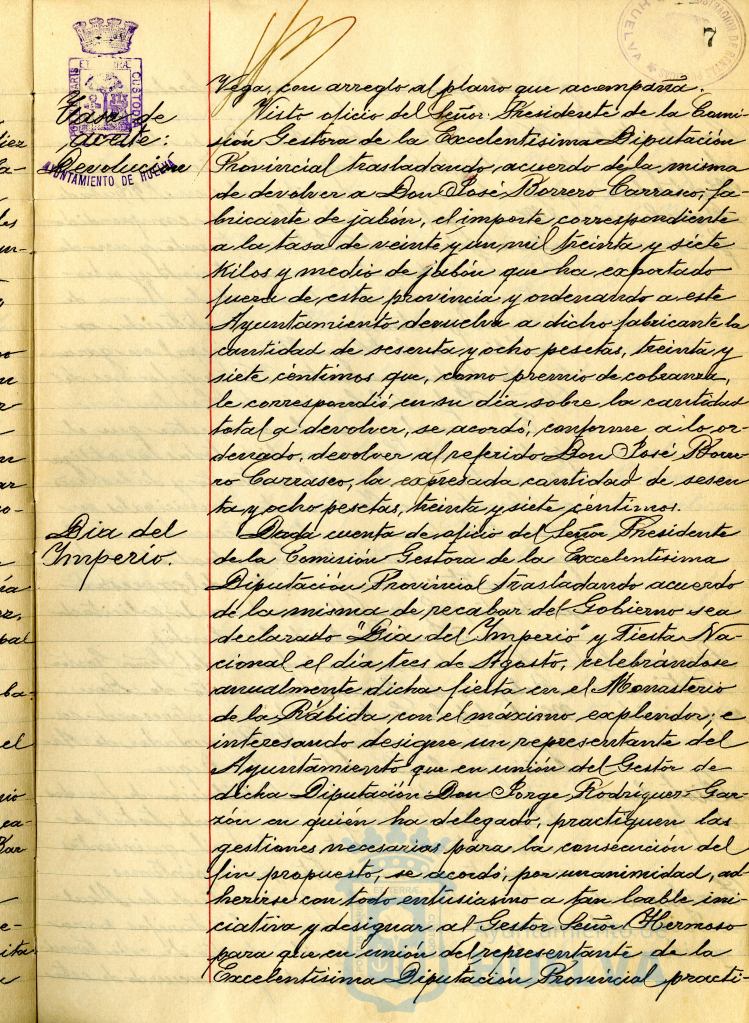 7
Vega, con arreglo al plano que acompaña.
Tasa de
aceite:
Devolución
AYUNTAMIENTO DE HUELVA
Visto oficio del Señor Presidente de la Comi-
sión Gestora de la Excelentísima Diputación
Provincial trasladando acuerdo de la misma
de devolver a Don José Borrero Carrasco, fa-
bricante de jabón, el importe correspondiente
a la tasa de veinte y un mil treinta y siete
kilos y medio de jabón que ha exportado
fuera de esta provincia y ordenando a este
Ayuntamiento devuelva a dicho fabricante la
cantidad de sesenta y ocho pesetas, treinta y
siete céntimos que, como premio de cobranza,
le correspondió en su día sobre la cantidad
total a devolver, se acordó, conforme a lo or-
denado, devolver al referido Don José Borre-
ro Carrasco, la expresada cantidad de sesen
ta y ocho pesetas, treinta y siete céntimos.
Dia del
Imperio.
Dada cuenta de oficio del Señor Presidente
de la Comisión Gestora de la Excelentísima
Diputación Provincial trasladando acuerdo
de la misma de recabar del Gobierno sea
declarado "Dia del Imperio" y Fiesta Na-
cional el día tres de Agosto, celebrándose
anualmente dicha fiesta en el Monasterio
de la Rábida con el máximo explendor; e
interesando designe un representante del
Ayuntamiento que en unión del Gestor de
dicha Diputación Don Jorge Rodríguez Gar-
zón en quién ha delegado, practiquen las
gestiones necesarias para la consecución del
fin propuesto, se acordó, por unanimidad, ad
herirse con todo entusiasmo a tan loable ini-
ciativa y designar al Gestor Señor Hermoso
para que en unión del representante de la
Excelentísima Diputación Provincial practi-